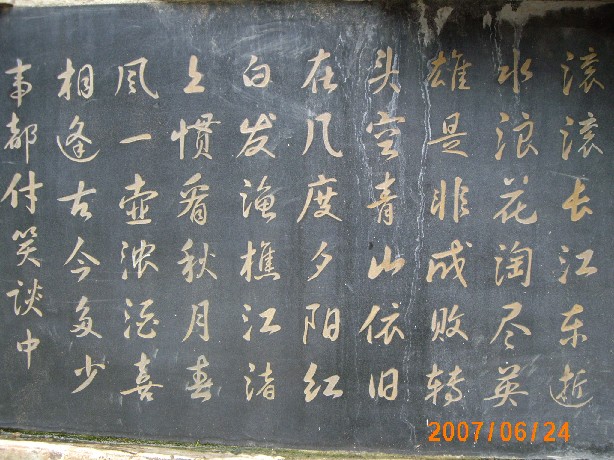 滚滚长江东逝
水浪花淘尽英
雄是非成败转
头空青山依旧
在几度夕阳红
白发渔樵江渚
上惯看秋月春
风一壶浊酒喜
相逢古今多少
事都付笑谈中
2007/06/24